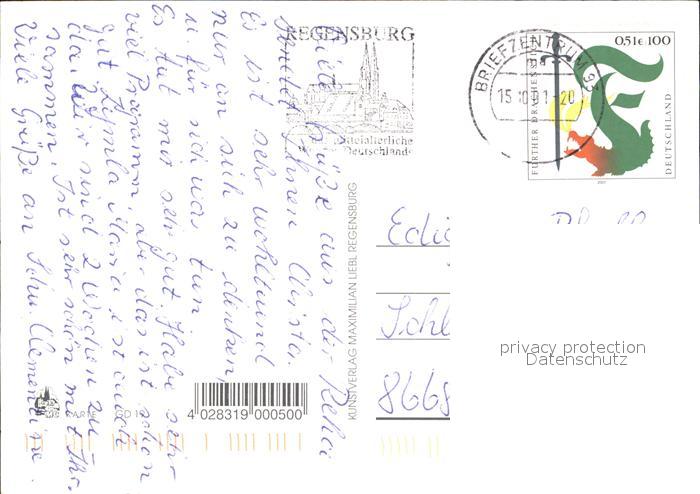 REGENSBURG
mittelalterliche
Deutschlands
BRIEFZENTRUM 93
15.10.01-20
0,51€ 100
FURTHER DRACHENSTICH
DEUTSCHLAND
2001
Viele Grüße aus der Reha
sendet Ihnen Christa.
Es ist sehr wohltuend
nur an sich zu denken,
u. für sich was tun.
Es tut mir sehr gut. Habe sehr
viel Programm aber das ist schon
gut. Maria ist auch
da. Wir sind 2 Wochen zu
sammen. Ist sehr schön mit Ihr.
Viele Grüße an Schw. Clementine.
KUNSTVERLAG MAXIMILIAN LIEBL REGENSBURG
Schl
8668
privacy protection
Datenschutz
KARTE GD 1
4 028319 000500